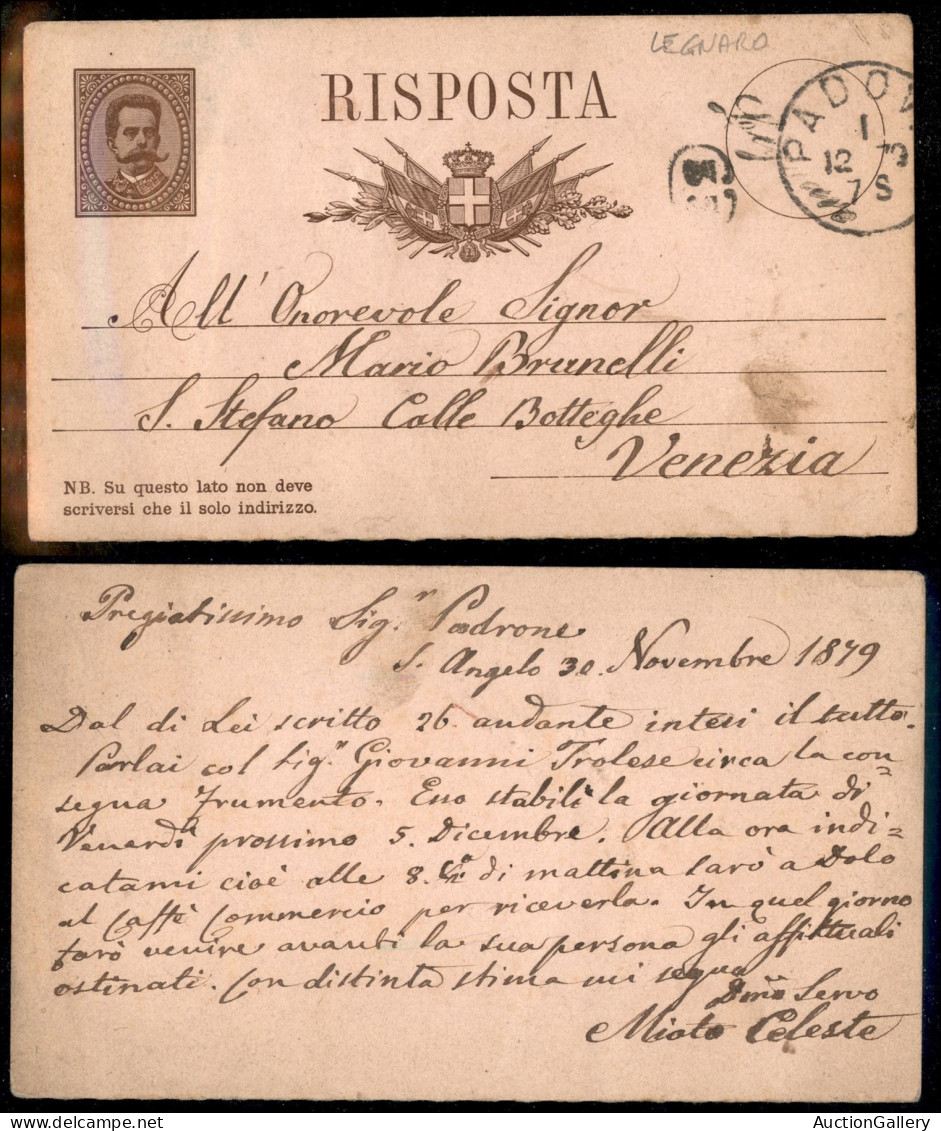 LEGNARO
RISPOSTA
PADOV
1
12 79
7 S
All' Onorevole Signor
Mario Brunelli
S. Stefano Calle Botteghe
Venezia
NB. Su questo lato non deve
scriversi che il solo indirizzo.
Pregiatissimo Sig.r Padrone
S. Angelo 30 Novembre 1879
Dal di Lei scritto 26 andante intesi il tutto.
Parlai col Sig.r Giovanni Trolese circa la con=
segna Frumento. Esso stabilì la giornata di
Venerdì prossimo 5. Dicembre. Alla ora indi=
catami cioè alle 8. di mattina sarò a Dolo
al Caffè Commercio per riceverla. In quel giorno
farò venire avanti la sua persona gli affittuali
ostinati. Con distinta stima mi segna
Servo
Miato Celeste
AuctionGallery